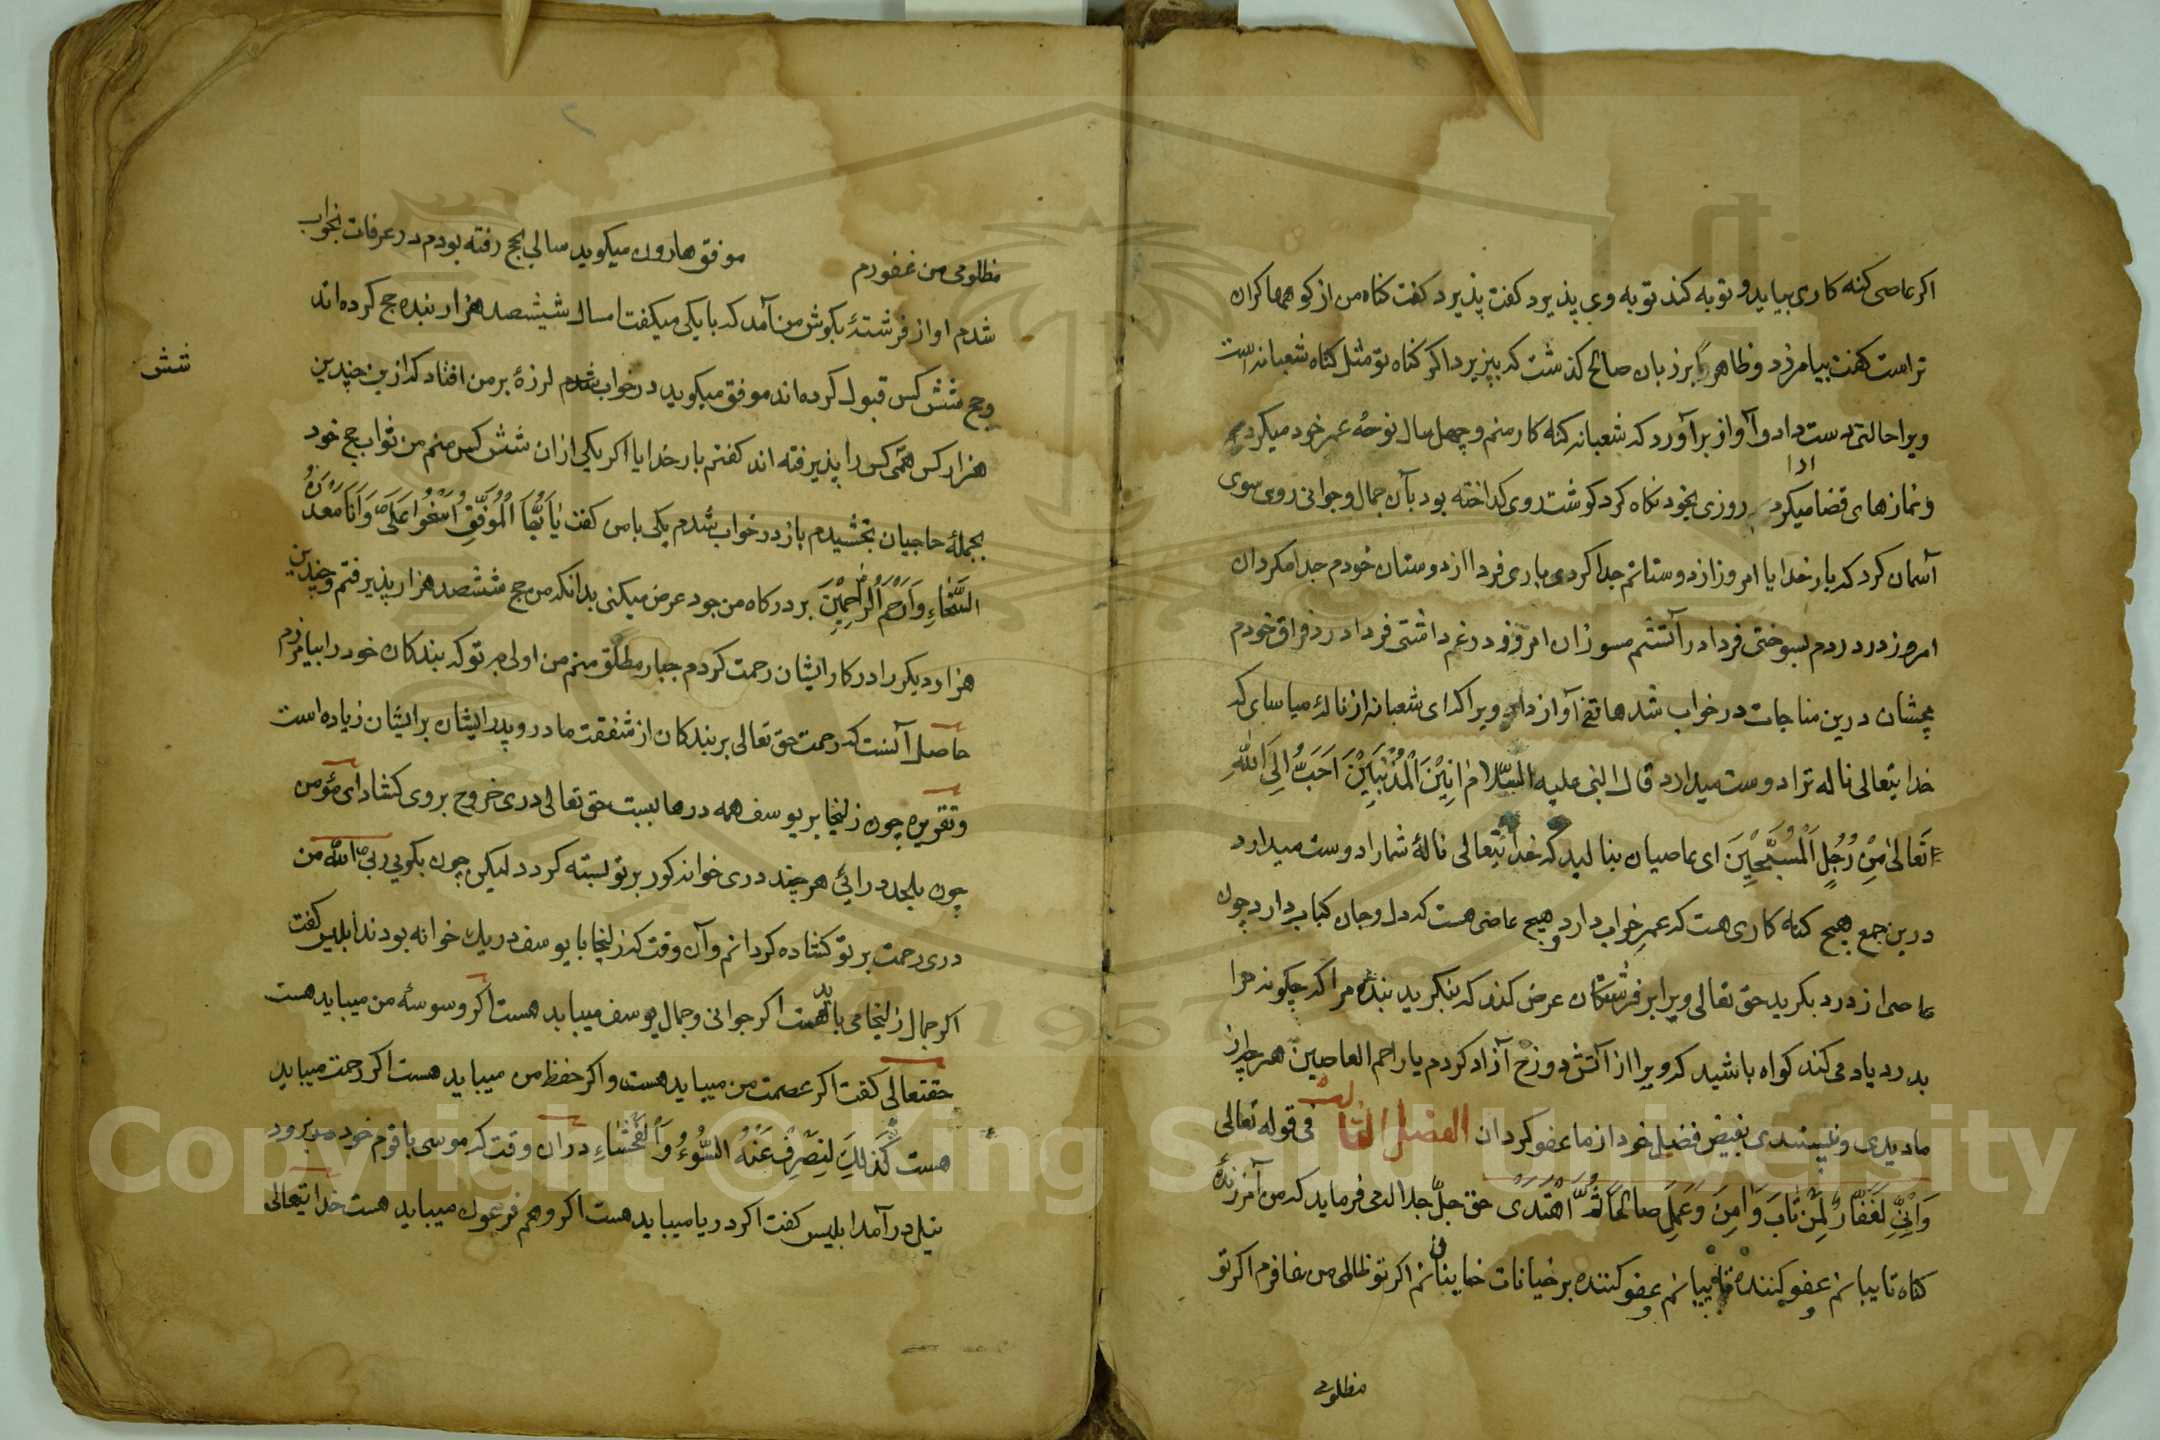 اکر عاصی کنه کاری بیاید و توبه کند توبه وی پذیرد کفت پذیرد کفت کناه من از کوهها کران
تراست کفت بیامرزد و ظاهرا بر زبان صالح کذشت که بپزیرد اکر کناه تو مثل کناه شعبانه است
ویرا حالتی دست داد و آواز برآورد که شعبانه کنه کار منم و چهل سال نوحه عمر خود میکرد
و نمازهای قضا میکرد روزی بخود نکاه کرد کوشت روی کداخته بود بآن جمال و جوانی روی سوی
ادا
آسمان کرد که بار خدایا امروز از دوستانم جدا کردی باری فردا از دوستان خودم جدا مکردان
امروز در دردم بسوختی فردا در آتشم مسوزان امروز در غم داشتی فردا در فراق خودم
مچشان درین مناجات در خواب شد هاتفی آواز داد ویرا که ای شعبانه از ناله میاسای که
خدایتعالی ناله ترا دوست میدارد قال النبی علیه السلام اَنِیْنَ الْمُذْنِبِیْنَ اَحَبُّ اِلَی اللهِ
تَعَالیٰ مِنْ زُجَلِ الْمُسَبِّحِیْنَ ای عاصیان بنالید که خدایتعالی ناله شما را دوست میدارد
درین جمع هیچ کنه کاری هست که عمرِ خواب دارد و هیچ عاصی هست که دل و جان کباب دارد چون
عاصی از درد بکرید حق تعالی ویرا بر فرشتکان عرض کند که بنکرید بنده مرا که چکونه مرا
بدرد یاد می کند کواه باشید که ویرا از آتش دوزخ آزاد کردم یا راحم العاصین هر چه از
ما دیدی و نپسندی بفیض فضل خود از ما عفو کردان الفصل الثالث فی قوله تعالی
وَاِنِّی لَغَفَّارٌ لِمَنْ تَابَ وَ اٰمَنَ وَ عَمِلَ صَالِحًا ثُمَّ اهْتَدَیٰ حق جلّ جلاله می فرماید که من آمرزنده
کناه تایبانم عفو کننده تایبانم عفو کننده بر خیانات خاینانم اکر تو ظالمی من غافرم اکر تو
مظلومی
مظلومی من غفورم موفق هارون میکوید سالی بحج رفته بودم در عرفات بخواب
شدم اواز فرشتهٔ بکوش من آمد که با یکی میکفت امسال ششصد هزار بنده حج کرده اند
و حج شش کس قبول کرده اند موفق میکوید در خواب شدم لرزهٔ بر من افتاد که ازین چندین
شش
هزار کس همی کس را پذیرفته اند کفتم بار خدایا اکر یکی ازان شش کس منم من ثواب حج خود
بجملهٔ حاجیان بخشیدم باز در خواب شدم یکی با من کفت یٰا اَیُّهَا الْمُوَفِّقُ اَتَسْخُوا عَلَیَّ وَ اَنَا مَعْدَنُ
السَّخَاءِ وَاَرْحَمُ الرّٰاحِمِیْنَ بر درکاه من جود عرض میکنی بدانکه من حج ششصد هزار پذیرفتم و چندین
هزار دیکر را در کار ایشان رحمت کردم جبار مطلق منم من اولی بر تو که بندکان خود را بیامرزم
حاصل آنست که رحمت حق تعالی بر بندکان از شفقت مادر و پدر ایشان بر ایشان زیاده است
و تقریره چون زلیخا بر یوسف همه درها ببست حق تعالی دری خروج بر وی کشاد ای مؤمن
چون بلحد درائی هر چند دری خوانه کور بر تو بسته کردد لیکن چون بکویی ربی الله من
دری رحمت بر تو کشاده کردانم و آن وقت که زلیخا با یوسف در یک خوانه بودند ابلیس کفت
اکر جمال زلیخا می باید هست اکر جوانی و جمال یوسف میباید هست اکر وسوسهٔ من میباید هست
حقتعالی کفت اکر عصمت من میباید هست و اکر حفظ من میباید هست اکر رحمت میباید
هست کَذٰلِکَ لِنَصْرِفَ عَنْهُ السُّوْءَ وَ الْفَحْشَاءِ دران وقت که موسی با قوم خود برود
نیل درآمد ابلیس کفت اکر دریا میباید هست اکر وهم فرعون میباید هست خدایتعالی